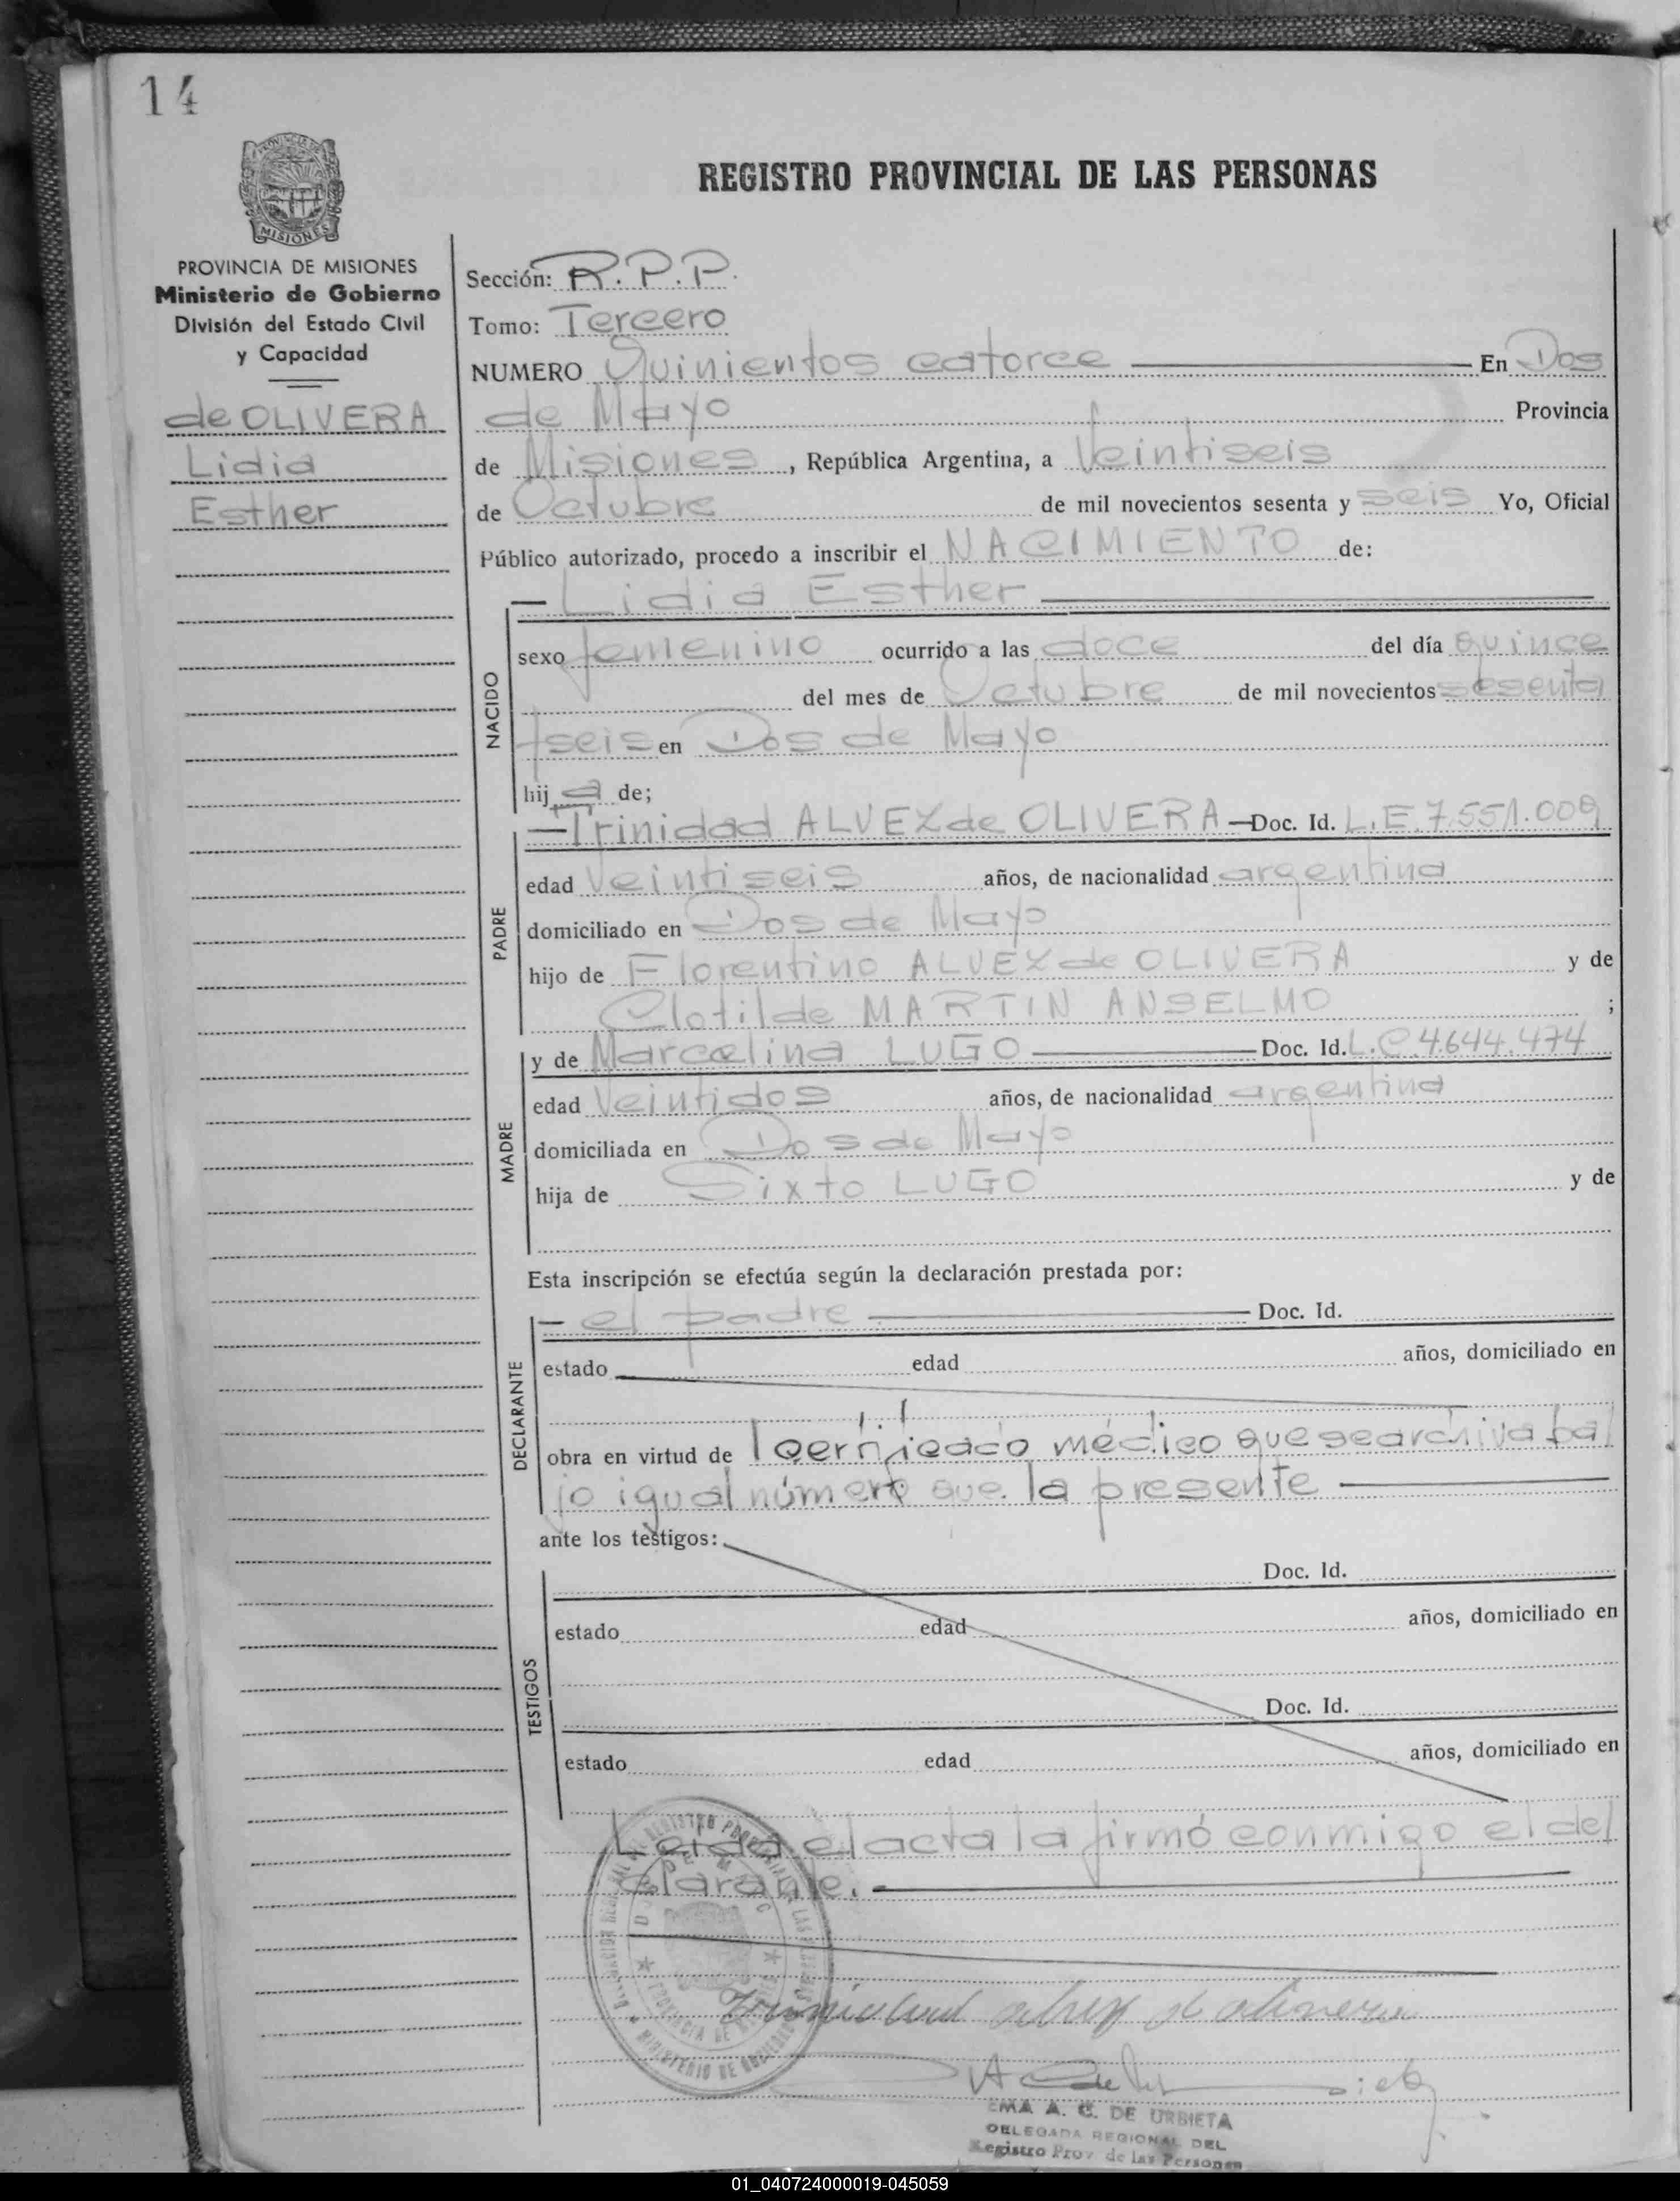 14
PROVINCIA DE MISIONES
Ministerio de Gobierno
División del Estado Civil
y Capacidad
de OLIVERA
Lidia
Esther
REGISTRO PROVINCIAL DE LAS PERSONAS
Sección: R.P.P.
Tomo: Tercero
NUMERO Quinientos catorce En Dos
de Mayo Provincia
de Misiones, República Argentina, a Veintiseis
de Octubre de mil novecientos sesenta y seis Yo, Oficial
Público autorizado, procedo a inscribir el NACIMIENTO de:
Lidia Esther
NACIDO
sexo femenino ocurrido a las doce del día quince
del mes de Octubre de mil novecientos sesenta
y seis en Dos de Mayo
hij a de;
PADRE
Trinidad ALVEZ de OLIVERA Doc. Id. L.E. 7.551.009
edad Veintiseis años, de nacionalidad argentina
domiciliado en Dos de Mayo
hijo de Florentino ALVEZ de OLIVERA y de
Clotilde MARTIN ANSELMO ;
MADRE
y de Marcelina LUGO Doc. Id. L.C. 4.644.474
edad Veintidos años, de nacionalidad argentina
domiciliada en Dos de Mayo
hija de Sixto LUGO y de
Esta inscripción se efectúa según la declaración prestada por:
DECLARANTE
el padre Doc. Id.
estado edad años, domiciliado en
obra en virtud de certificado médico que se archiva ba
jo igual número que la presente
ante los testigos:
TESTIGOS
Doc. Id.
estado edad años, domiciliado en
Doc. Id.
estado edad años, domiciliado en
Leida el acta la firmó conmigo el de
clarante.
EMA A. C. DE URBIETA
DELEGADA REGIONAL DEL
Registro Prov. de las Personas
01_040724000019-045059